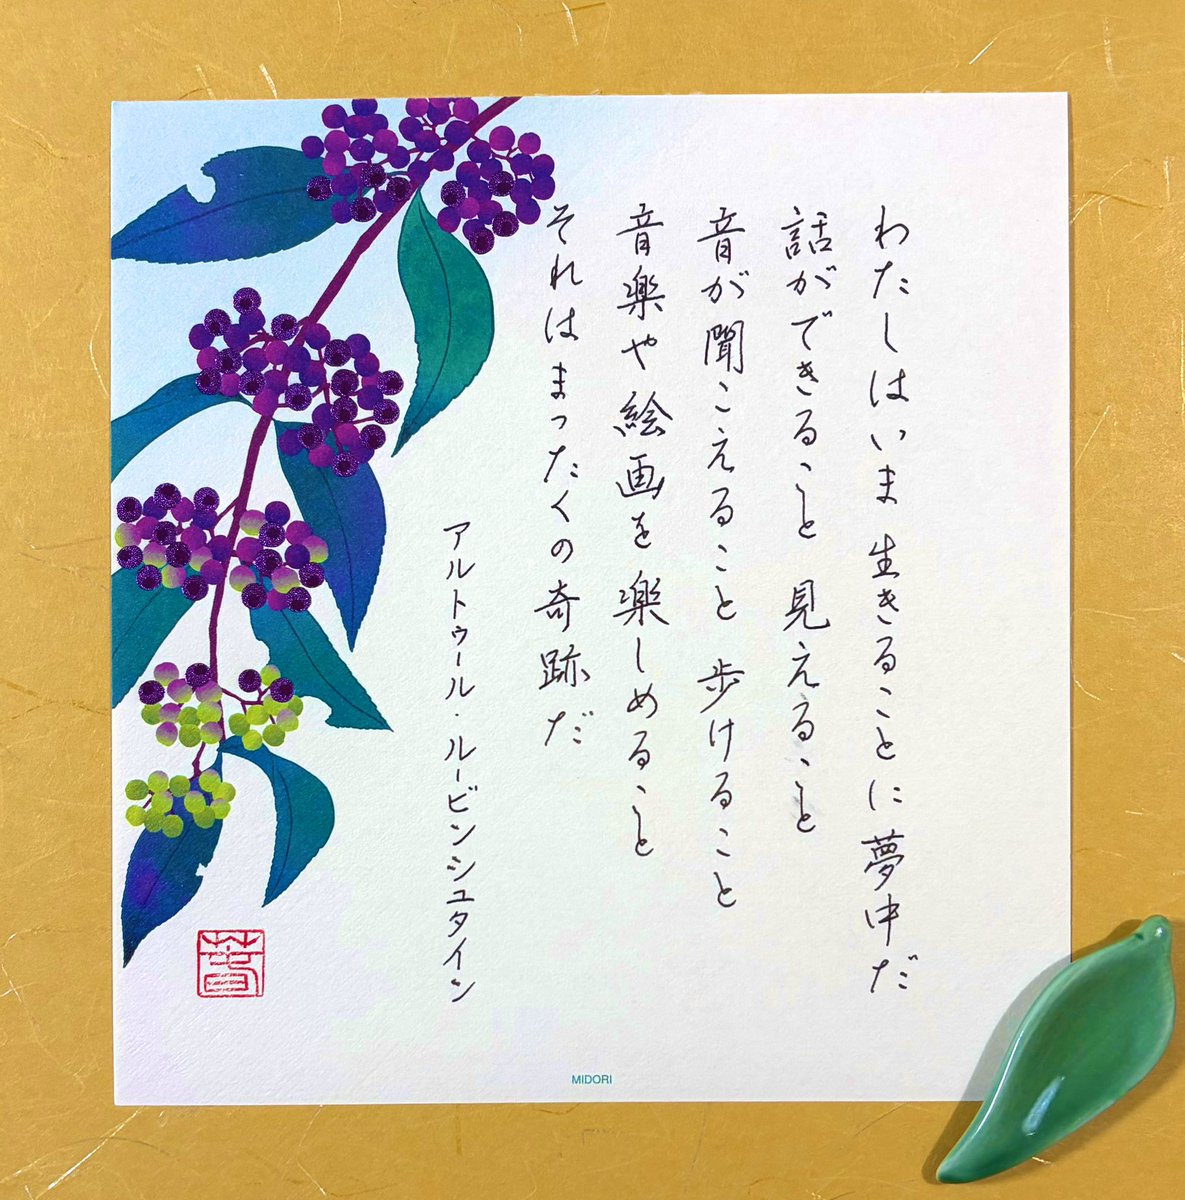 わたしはいま 生きることに夢中だ
話ができること 見えること
音が聞こえること 歩けること
音楽や絵画を楽しめること
それはまったくの奇跡だ
アルトゥール・ルービンシュタイン
MIDORI